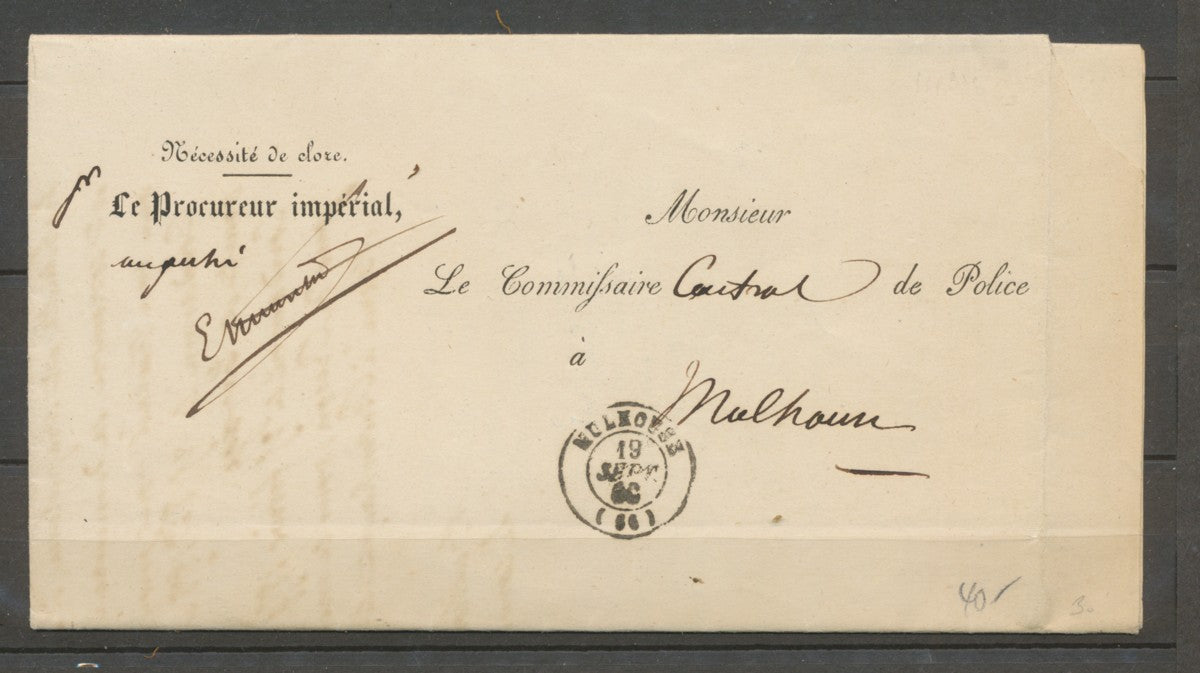 Nécessité de clore.
Pr Le Procureur impérial,
empêché
Monsieur
Le Commissaire Central de Police
à
Mulhouse
MULHOUSE
19
SEPT.
(66)
40